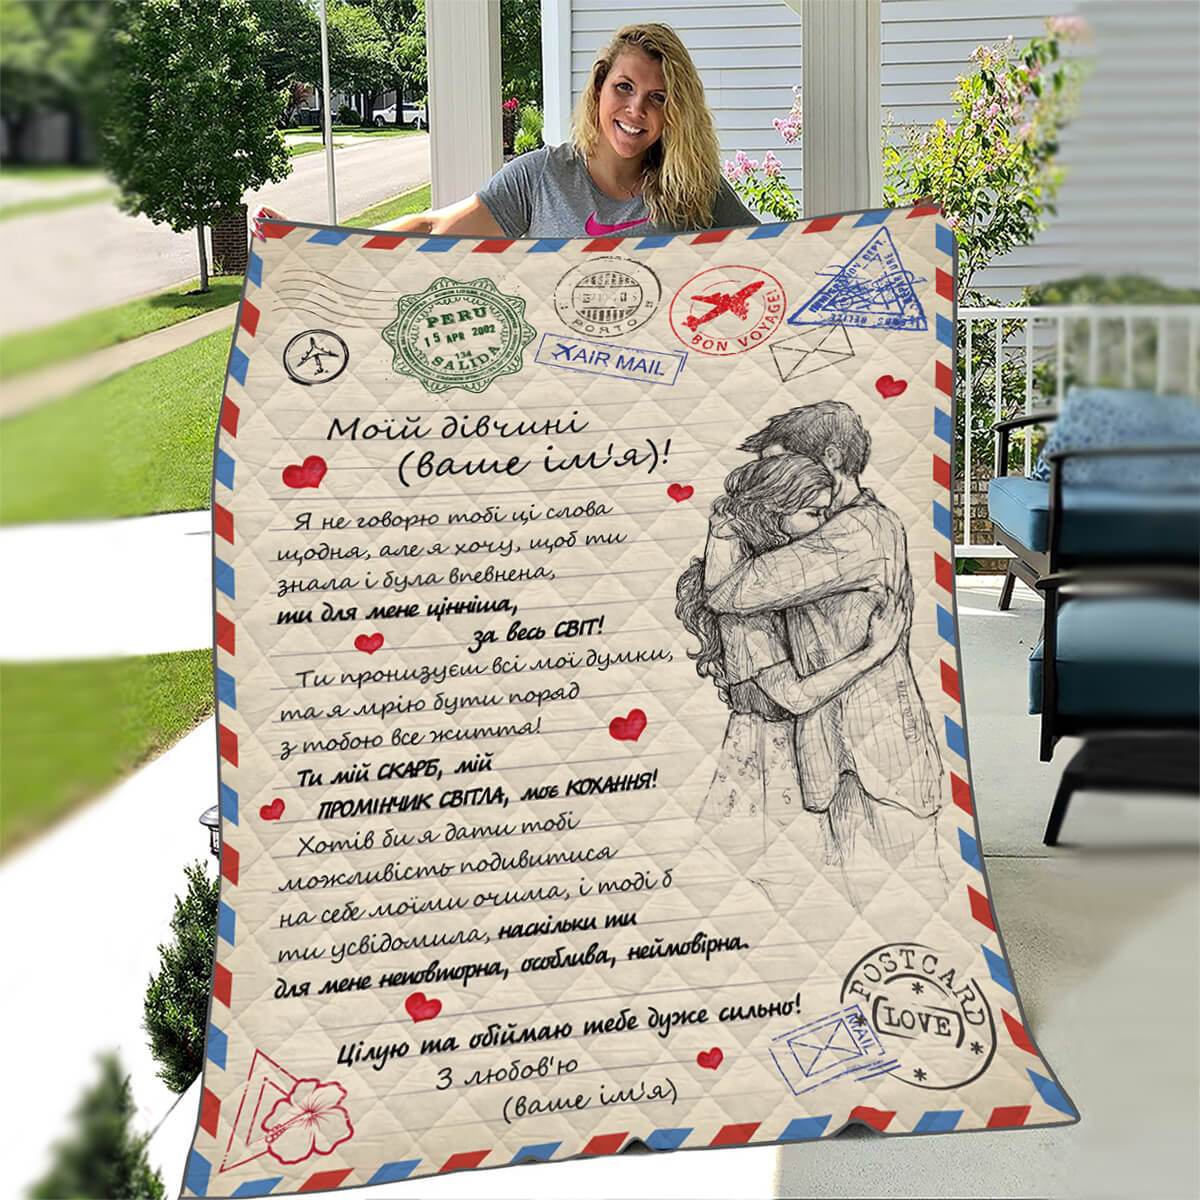 PERU
15 APR 2002
134
SALIDA
PORTO
AIR MAIL
BON VOYAGE!
Моїй дівчині
(ваше ім'я)!
Я не говорю тобі ці слова
щодня, але я хочу, щоб ти
знала і була впевнена,
ти для мене цінніша,
за весь СВІТ!
Ти пронизуєш всі мої думки,
та я мрію бути поряд
з тобою все життя!
Ти мій СКАРБ, мій
ПРОМІНЧИК СВІТЛА, моє КОХАННЯ!
Хотів би я дати тобі
можливість подивитися
на себе моїми очима, і тоді б
ти усвідомила, наскільки ти
для мене неповторна, особлива, неймовірна.
Цілую та обіймаю тебе дуже сильно!
З любов'ю
(ваше ім'я)
POSTCARD
LOVE
MAIL